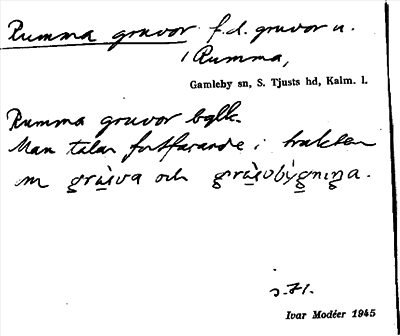 Rumma gruvor f.d. gruvor u.
/ Rumma,
Gamleby sn, S. Tjusts hd, Kalm. l.
Rumma gruvor bglk.
Man talar fortfarande i trakten
om och
s. 71.
Ivar Modéer 1945